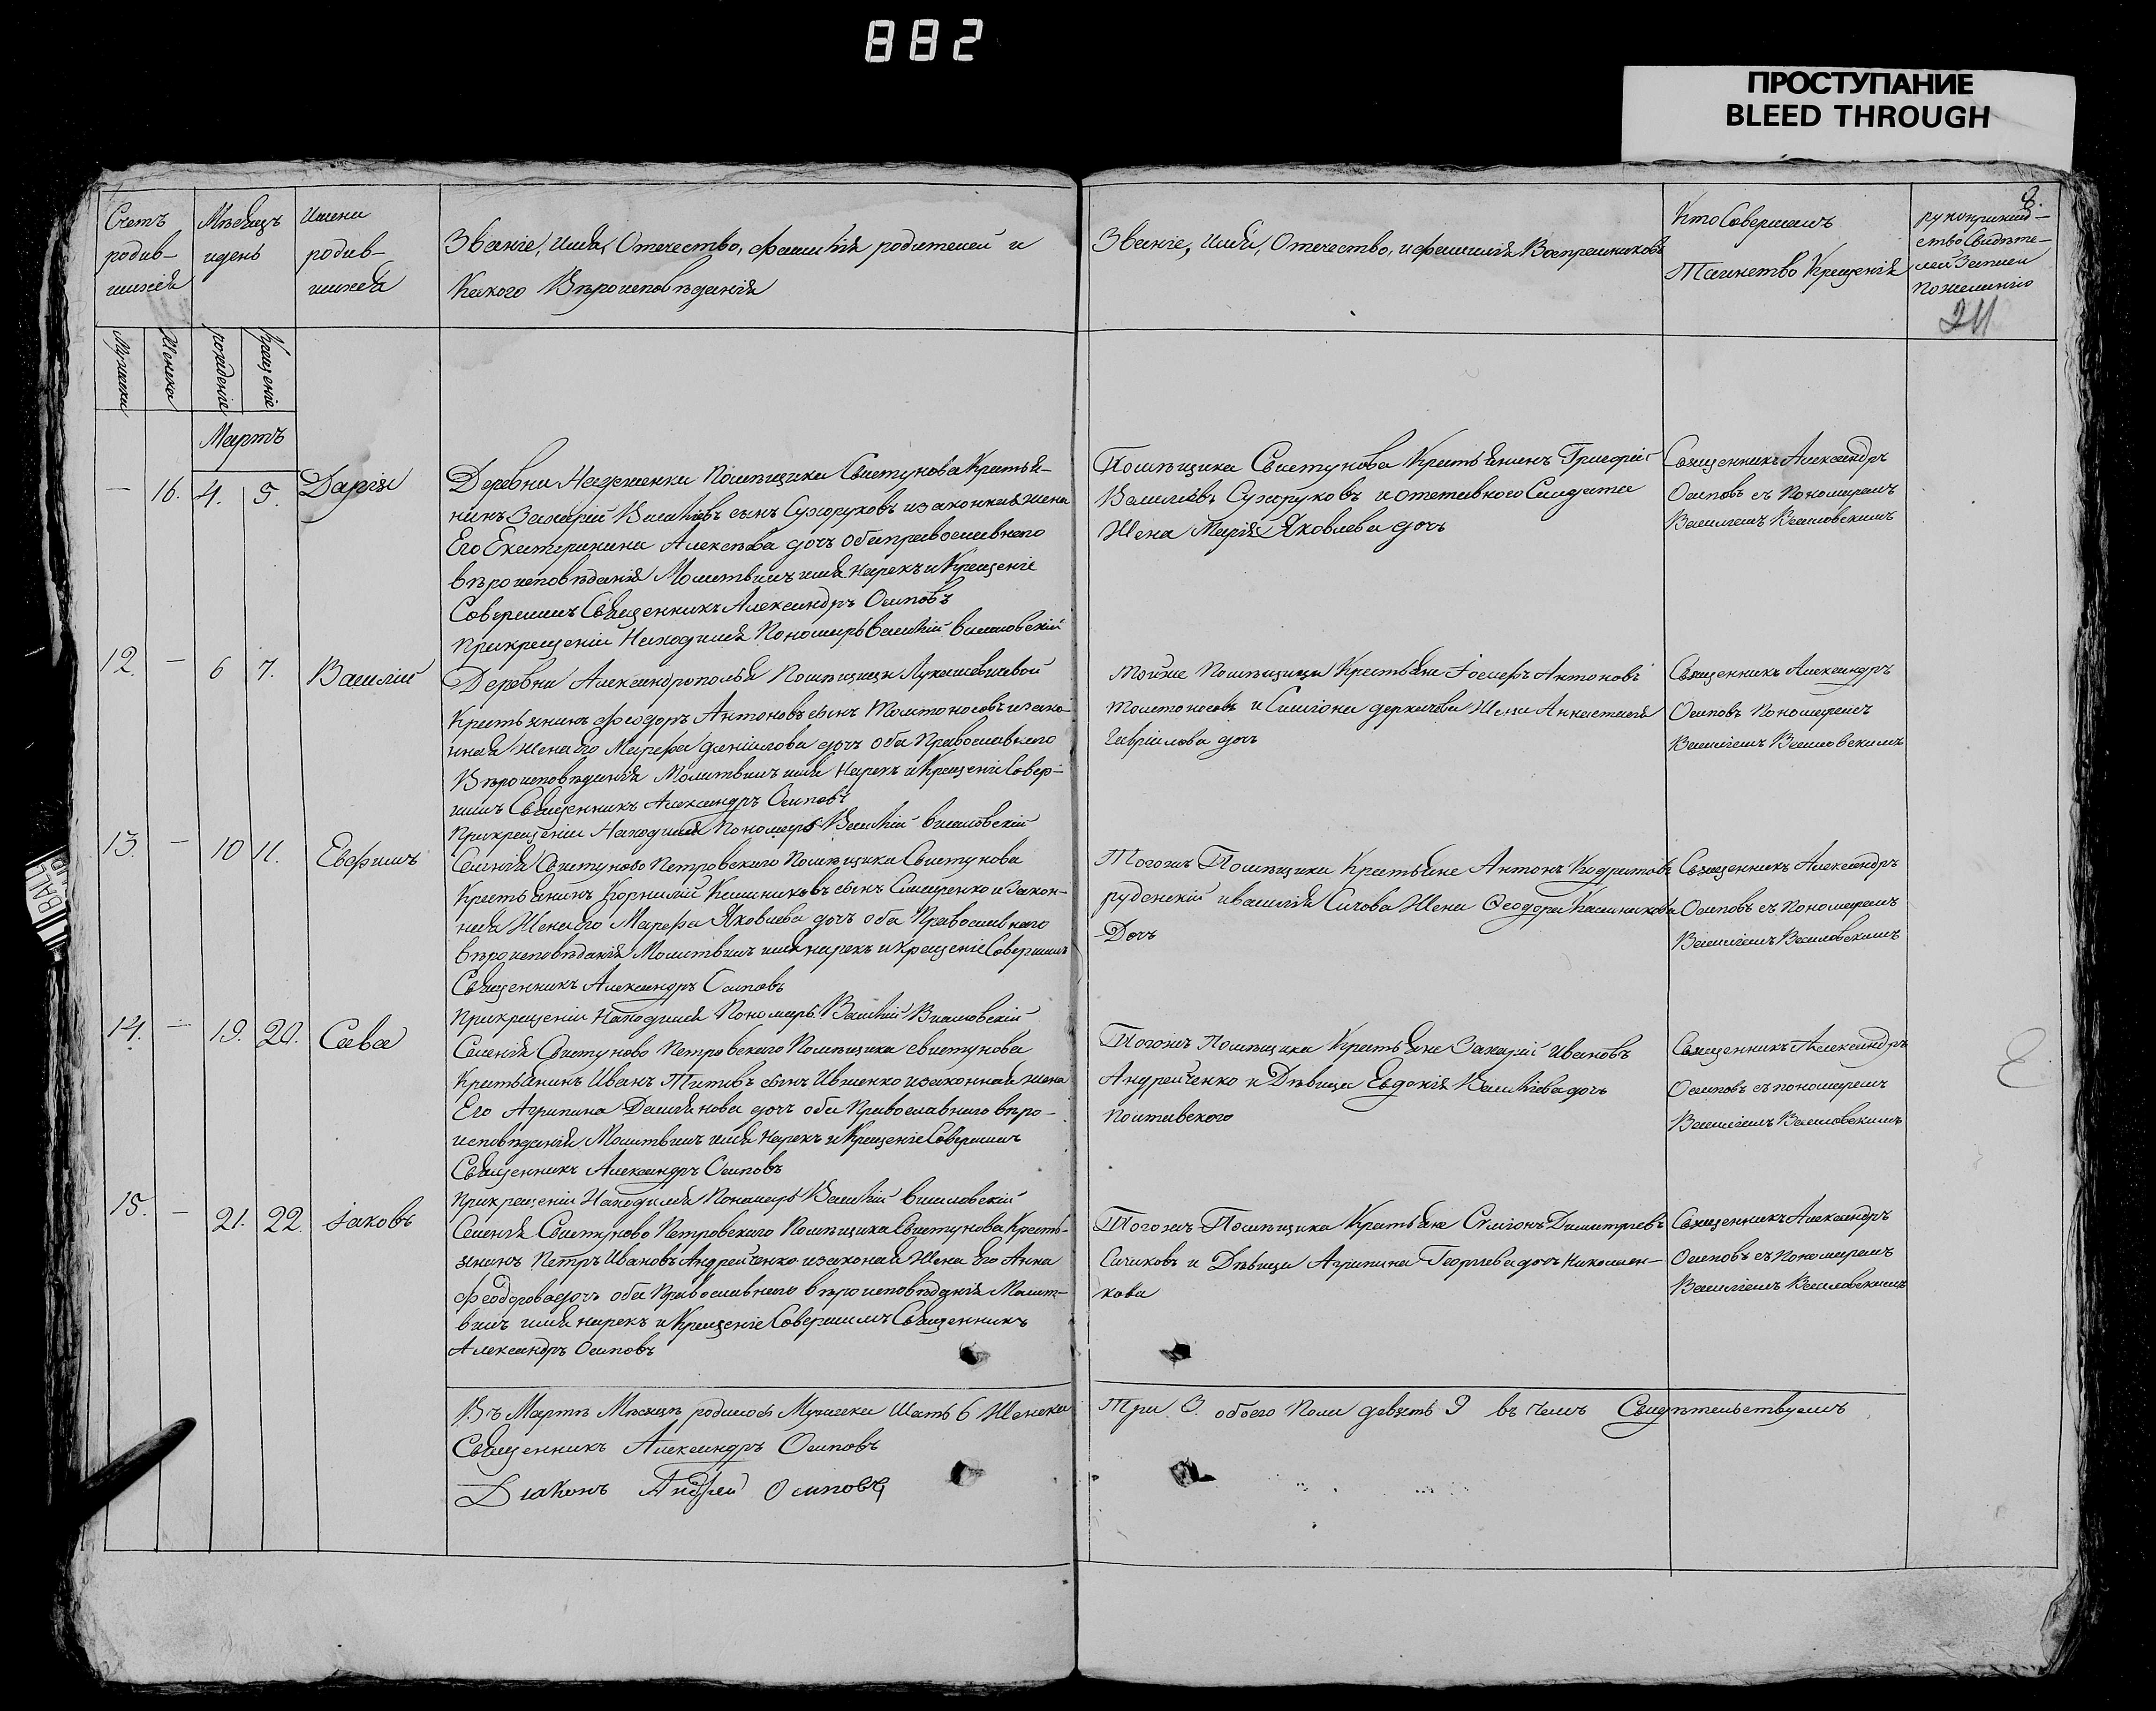 882
ПРОСТУПАНИЕ
BLEED THROUGH
8.
Счетъ
родив-
шихся
Мѣсяцъ
и день
Имена
родив-
шихся
Званіе, имя, Отечество, фамилія родителей и
Какого Вѣроисповѣданія
Званіе, имя, Отечество, и фамилия Восприемниковъ
Кто Совершалъ
Таинство Крещенія
рукоприклад-
ство Свидѣте-
лей Записи
по желанію
211
Мужеска
Женска
рожденіе
Крещеніе
Мартъ
— 16. 4. 5. Дарія
Деревни Надеженки Помѣщика Свистунова Крестья-
нинъ Захарій Василіевъ сынъ Сухоруковъ и законная жена
Его Екатерина Алексѣева дочь оба православнаго
вѣроисповѣданія Молитвилъ имя Нарекъ и Крещеніе
Совершилъ Священникъ Александръ Осиповъ
При крещеніи Находился Пономарь Василій Василовскій
Помѣщика Свистунова Крестьянинъ Григорій
Василіевъ Сухоруковъ и отставного Солдата
Жена Марія Яковлева дочь
Священникъ Александръ
Осиповъ съ Пономаремъ
Василіемъ Василовскимъ
12. — 6 7. Василій
Деревни Александрополья Помѣщицы Лукашевичевой
Крестьянинъ Феодоръ Антоновъ сынъ Толстоносовъ и зако-
нная жена Его Марфа Даніилова дочь оба Православнаго
Вѣроисповѣданія Молитвилъ имя Нарекъ и Крещеніе Совер-
шилъ Священникъ Александръ Осиповъ
При крещеніи Находился Пономарь Василій Василовскій
Тойже Помѣщицы Крестьяне Іосифъ Антоновъ
Толстоносовъ и Симеона Деркачова Жена Анастасія
Гавріилова дочь
Священникъ Александръ
Осиповъ Пономаремъ
Василіемъ Василовскимъ
13. — 10 11. Евфимъ
Селенія Свистуново Петровскаго Помѣщика Свистунова
Крестьянинъ Корнилий Калиниковъ сынъ Смаренко и закон-
ная Жена Его Марфа Яковлева дочь оба Православнаго
вѣроисповѣданія Молитвилъ имя нарекъ и крещеніе Совершилъ
Священникъ Александръ Осиповъ
При крещеніи Находился Пономарь Василій Василовскій
Тогожъ Помѣщика Крестьяне Антонъ Кодратовъ
руденскій и василія Сичова Жена Феодора Калиникова
Дочь
Священникъ Александръ
Осиповъ съ Пономаремъ
Василіемъ Василовскимъ
14. — 19. 20. Сава
Селенія Свистуново Петровскаго Помѣщика Свистунова
Крестьянинъ Иванъ Титивъ сынъ Ившенко и законная жена
Его Агрипина Даміянова дочь оба Православнаго вѣро-
исповѣданія Молитвилъ имя Нарекъ и Крещеніе Совершилъ
Священникъ Александръ Осиповъ
При крещеніи Находился Пономарь Василій Василовскій
Тогожъ Помѣщика Крестьяне Захарій Ивановъ
Андрейченко и Дѣвица Евдокія Василіева дочь
Полтавского
Священникъ Александръ
Осиповъ съ пономаремъ
Василіемъ Василовскимъ
15. — 21. 22. Іаковъ
Селенія Свистуново Петровскаго Помѣщика Свистунова Кресть-
янинъ Петръ Ивановъ Андрейченко и законай Жена Его Анна
Феодорова дочь оба Православнаго вѣроисповѣданія Молит-
вилъ имя нарекъ и Крещеніе Совершилъ Священникъ
Александръ Осиповъ
Тогожъ Помѣщика Крестьяне Симіонъ Димитріевъ
Сичковъ и Дѣвица Агрипина Георгіева дочь Николаен-
кова
Священникъ Александръ
Осиповъ съ Пономаремъ
Василіемъ Василовскимъ
Въ Мартѣ Мѣсяцѣ родилось Мужеска Шесть 6 Женска Три 3. обоего Пола девять 9 въ чемъ Свидѣтельствуемъ
Священникъ Александръ Осиповъ
Діаконъ Андрей Осиповъ